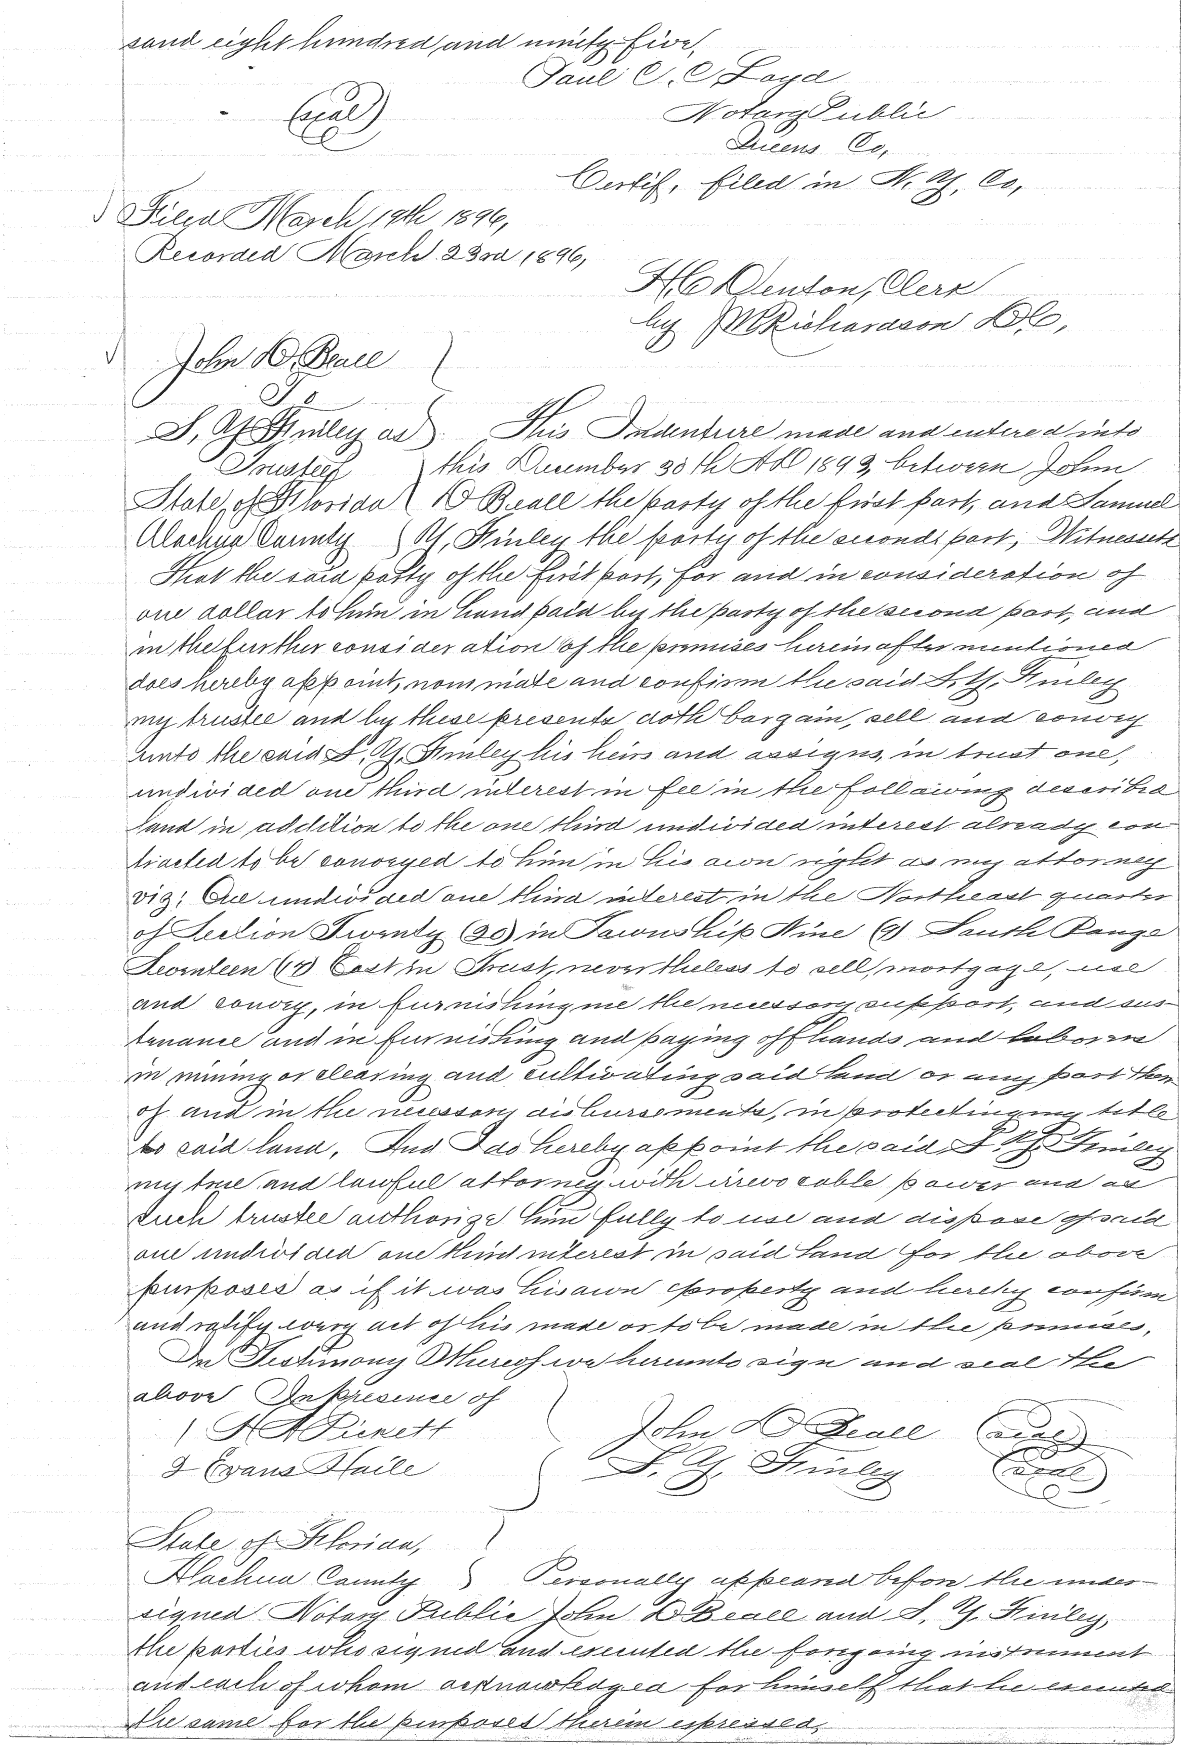 sand eight hundred and ninety five,
Paul C. C. Loyd
(seal)
Notary Public
Queens Co,
Certif, filed in N. Y. Co,
Filed March 19th 1896,
Recorded March 23rd 1896,
H. C. Denton, Clerk
by Richardson D. C,
John D, Beall
To
S, Y. Finley as This Indenture made and entered into
Trustee this December 30th AD 1893, between John
State of Florida D Beall the party of the first part, and Samuel
Alachua County Y, Finley the party of the second part; Witnesseth
That the said party of the first part, for and in consideration of
one dollar to him in hand paid by the party of the second part, and
in the further consideration of the premises hereinafter mentioned
does hereby appoint, nominate and confirm the said S. Y. Finley
my trustee and by these presents doth bargain, sell and convey
unto the said S. Y. Finley his heirs and assigns, in trust one,
undivided one third interest in fee in the following described
land in addition to the one third undivided interest already con
tracted to be conveyed to him in his own right as my attorney
viz: One undivided one third interest in the Northeast quarter
of Section Twenty (20) in Township Nine (9) South Range
Seventeen (17) East in Trust, nevertheless to sell, mortgage, use
and convey, in furnishing me the necessary support, and sus-
tenance and in furnishing and paying off hands and laborers
in mining or clearing and cultivating said land or any part there
of and in the necessary disbursements, in protecting my title
to said land, And I do hereby appoint the said S. Y. Finley
my true and lawful attorney with irrevocable power and as
such trustee authorize him fully to use and dispose of said
one undivided one third interest in said land for the above
purposes as if it was his own property and hereby confirm
and ratify every act of his made or to be made in the premises,
In Testimony Whereof we hereunto sign and seal the
above In presence of
1 Pickett John D Beall (seal)
2 Evans Haile S. Y. Finley (seal)
State of Florida,
Alachua County Personally appeared before the under-
signed Notary Public John D Beall and S, Y. Finley,
the parties who signed and executed the foregoing instrument
and each of whom acknowledged for himself that he executed
the same for the purposes therein expressed,